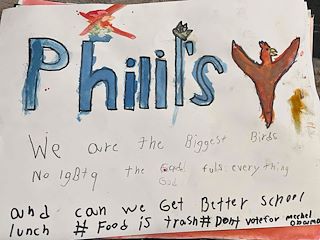 Philil's
We are the Biggest Birds
No lgBtq the God fols everything
God
and can we Get Better School
lunch # Food is trash # Dont vote for mechel
obama